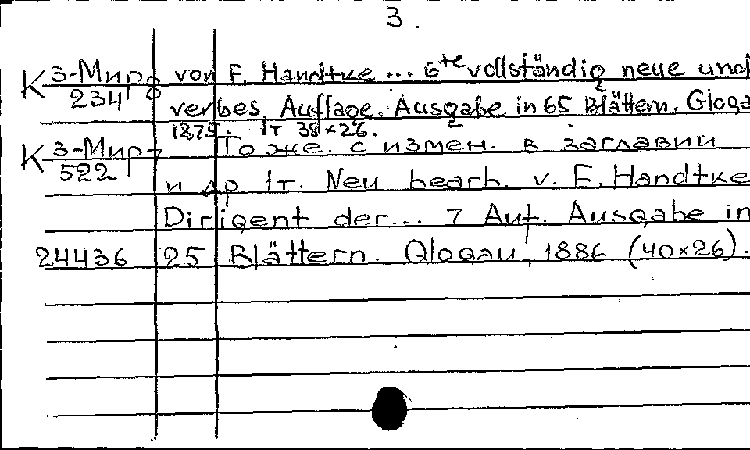 3.
К 3-Мир 8 von F. Handtke ... 6te vollständig neue und
234
verbes. Auflage. Ausgabe in 65 Blättern. Gloga
1875. 1т 38×26.
К 3-Мир- То же. с измен. в заглавии
522
и др 1т. Neu bearb. v. F. Handtke
Dirigent der... 7 Auf. Ausgabe in
24436 25 Blättern. Glogau, 1886 (40×26).